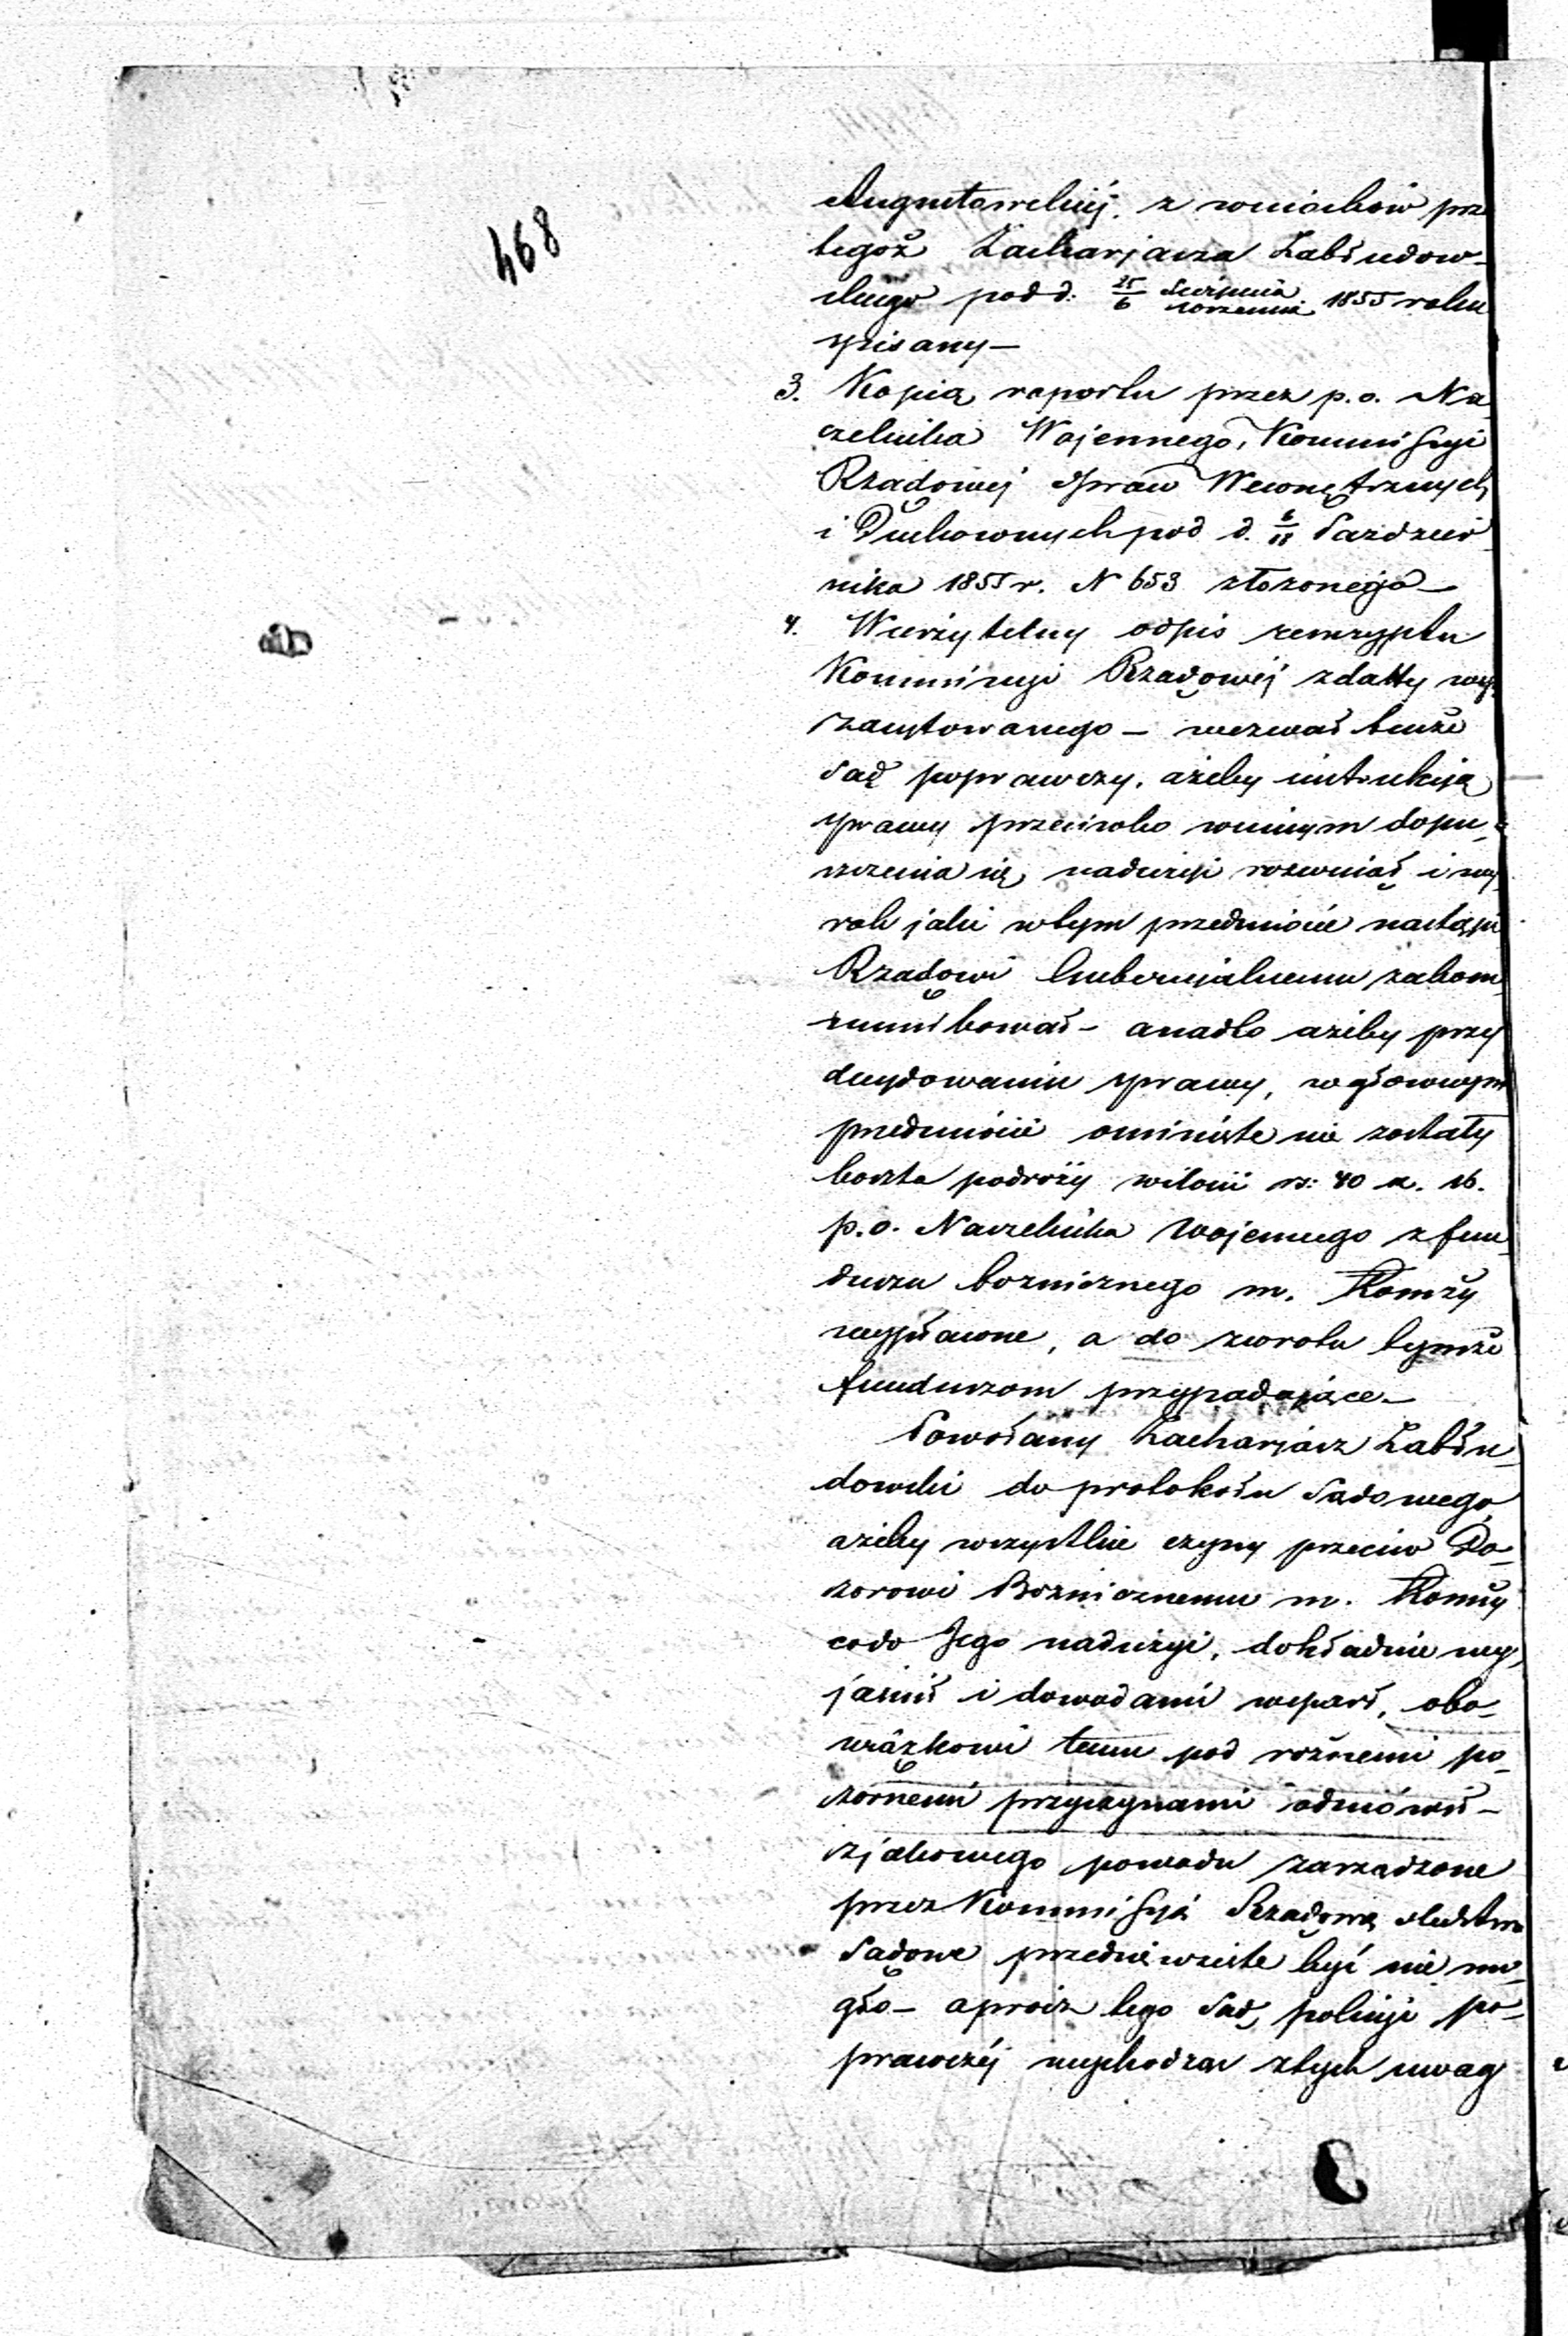 468
Augustowskiéj, z wniosków prze
tegoż Zacharjasza Zabłudow-
skiego pod d: 25/6 Sierpnia/Września 1855 roku
spisany —
3. Kopią raportu przez p.o. Na-
czelnika Wojennego, Kommissyi
Rządowéj Spraw Wewnętrznych
i Duchownych pod d. 6/18 Paździer-
nika 1855 r. N 653 złożonego —
4. Wierzytelny odpis reskryptu
Kommissyi Rządowéj z datty wyż
zacytowanego — wezwał tenże
Sąd poprawczy, ażeby instrukcją
sprawy przeciwko winnym dopu-
szczenia się nadużyć rozwinął i wy-
rok jaki w tym przedmiocie nastąpi
Rządowi Gubernjalnemu zakom-
munikował — a nadto ażeby przy
decydowaniu sprawy, w głownym
przedmiocie ominięte nie zostały
koszta podróży w ilości rs: 40 k. 16.
p.o. Naczelnika Wojennego z fun-
duszu bożnicznego m. Łomży
wypłacone, a do zwrotu tymże
funduszom przypadające —
Powołany Zacharjasz Zabłu-
dowski do protokołu Sądowego
ażeby wszystkie czyny przeciw Do-
zorowi Bożnicznemu m. Łomży
co do Jego nadużyć, dokładnie wy-
jaśnił i dowodami wsparł, obo-
wiązkowi temu pod rożnemi po-
zornemi przyczynami odmówił —
z jakowego powodu zarządzone
przez Kommissyą Rządową śledztwo
Sądowe przedsięwzięte być nie mo-
gło — a prócz tego Sąd policyi po-
prawczéj wychodząc z tych uwag